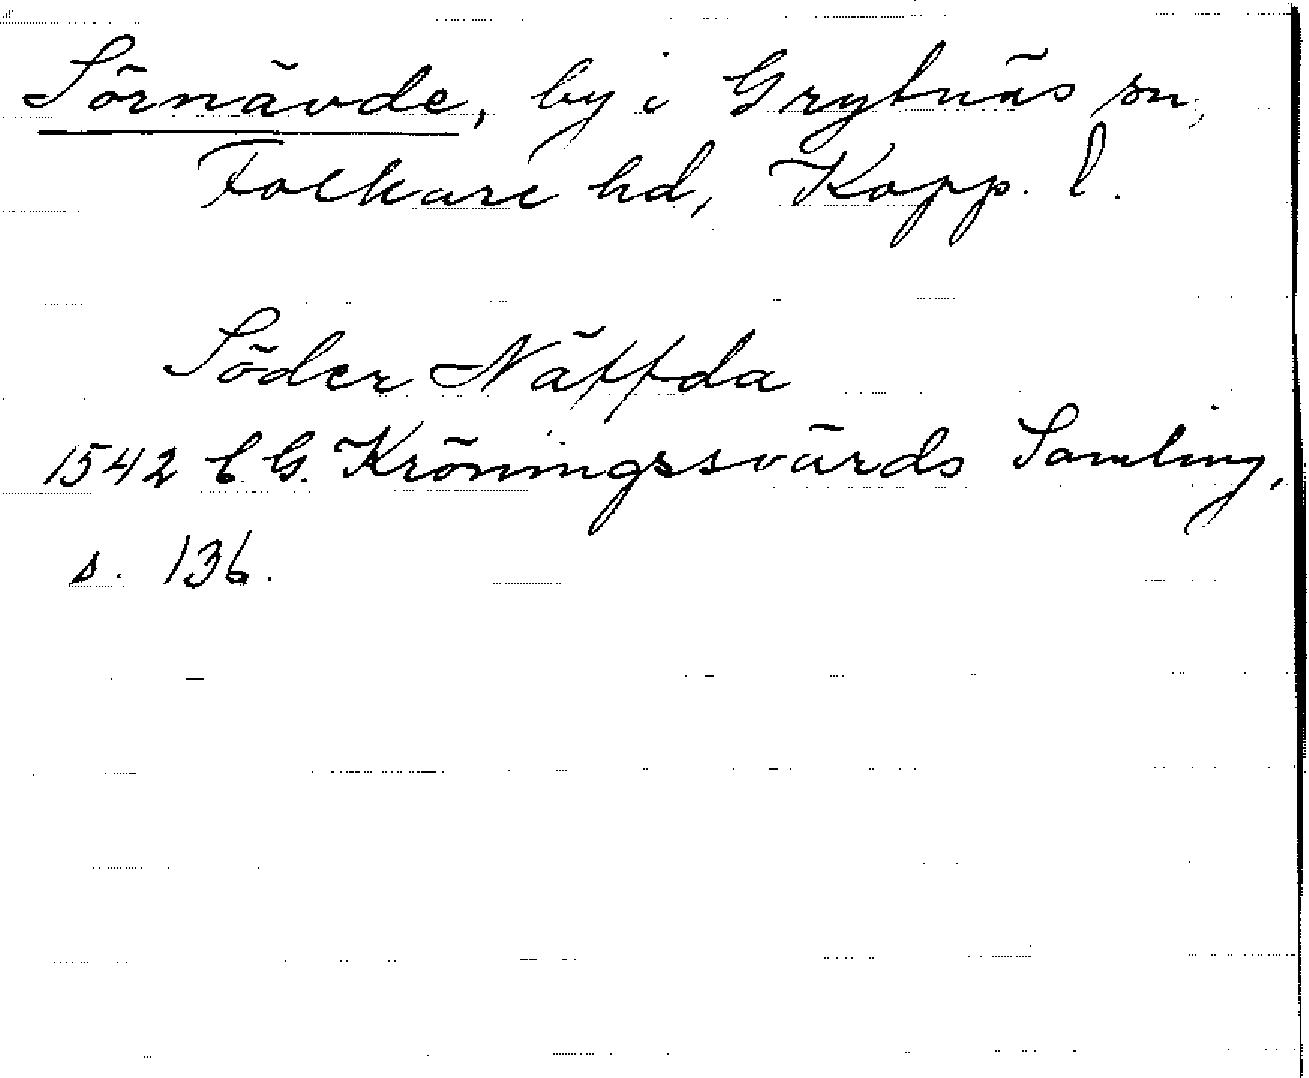 Sörnävde, by i Grytnäs sn,
Folkare hd, Kopp. l.
Söder Näffda
1542 C. G. Kröningssvärds Samling,
s. 136.